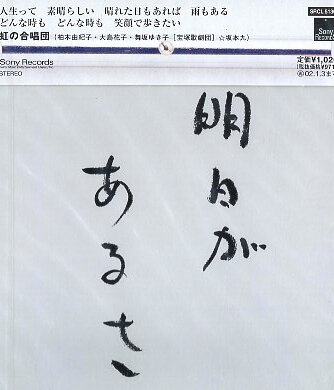 人生って 素晴らしい 晴れた日もあれば 雨もある
どんな時も どんな時も 笑顔で歩きたい
虹の合唱団(柏木由紀子・大島花子・舞坂ゆき子[宝塚歌劇団]☆坂本九)
SRCL 513
Sony Records
Sony Records
STEREO
定価¥1,02
税抜価格¥971
02.1.3まで
明日が
あるさ